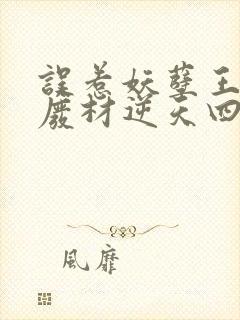 誤惹妖孽王
廢材逆天四
風靡